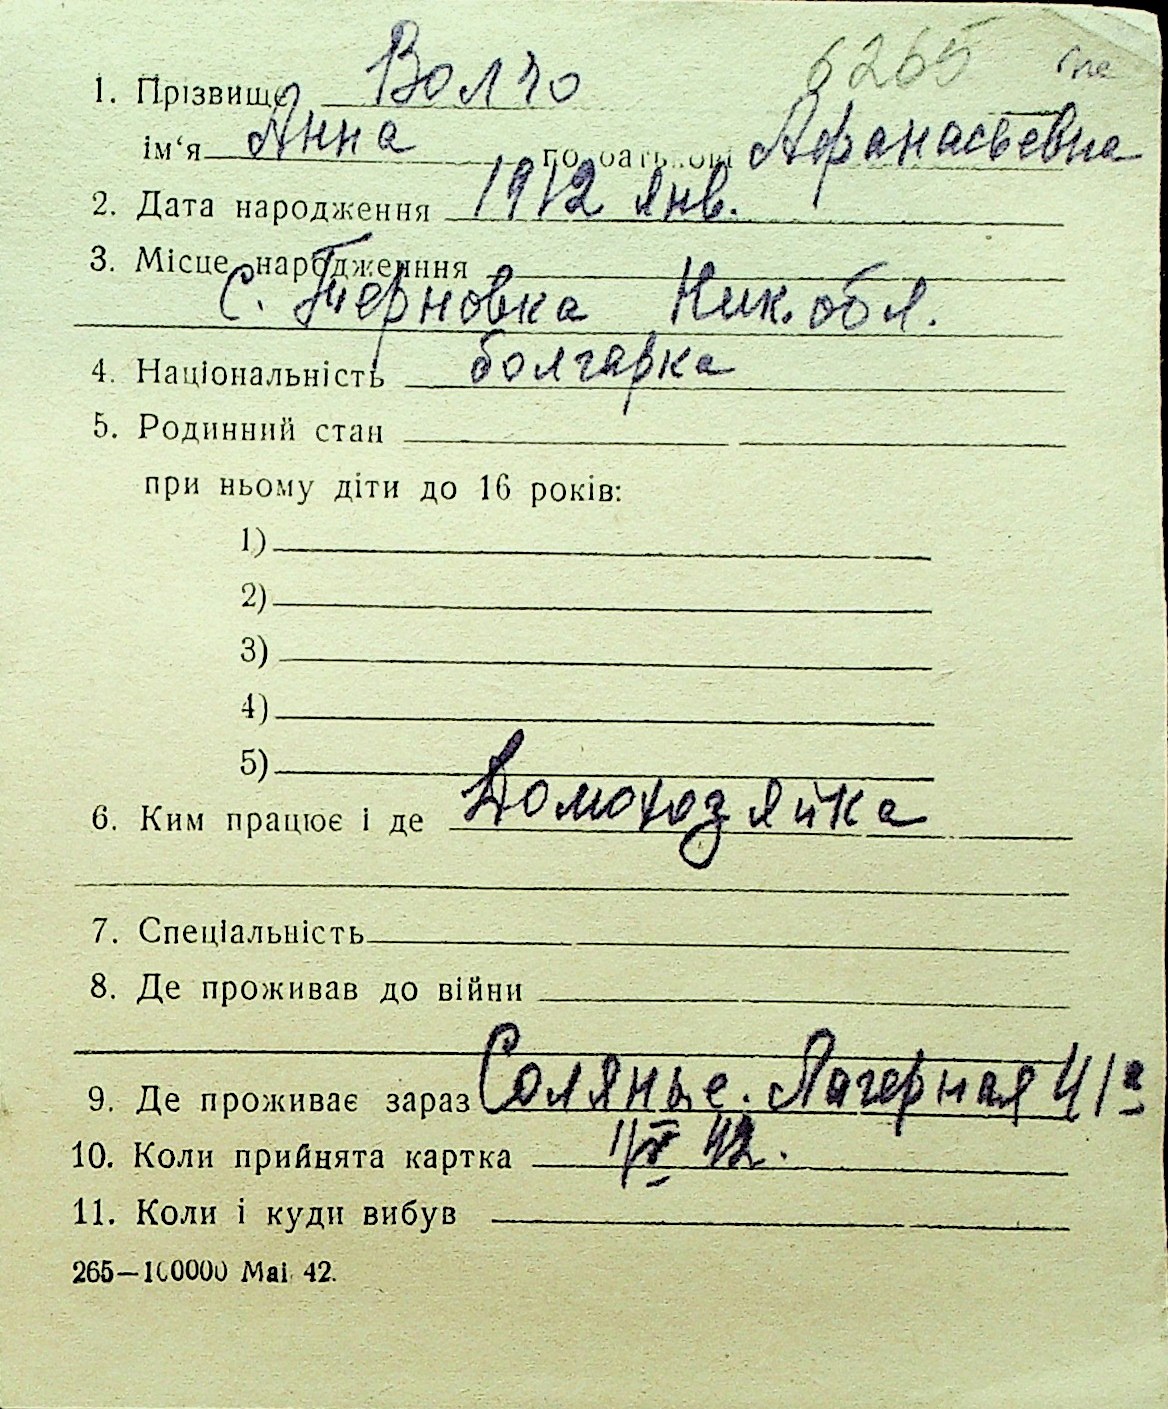 6265
1. Прізвище Волчо
ім‘я Анна по батькові Афанасьевна
2. Дата народження 1912 янв.
3. Місце народженння
с. Терновка Ник. обл.
4. Національність болгарка
5. Родинний стан
при ньому діти до 16 років:
1)
2)
3)
4)
5)
6. Ким працює і де Домохозяйка
7. Спеціальність
8. Де проживав до війни
9. Де проживає зараз Соляные. Лагерная 41а
10. Коли прийнята картка 42.
11. Коли і куди вибув
265—100000 Mai 42.